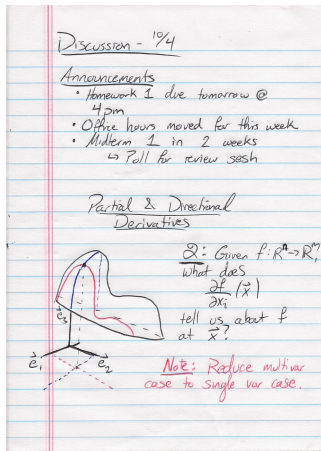 Discussion - 10/4
Announcements
• Homework 1 due tomorrow @
4pm
• Office hours moved for this week
• Midterm 1 in 2 weeks
↳ Poll for review sesh
Partial & Directional
Derivatives
Q: Given f: Rⁿ→Rᵐ,
what does
∂f/∂xᵢ (x⃗)
tell us about f
at x⃗?
e⃗₃
e⃗₁ e⃗₂
Note: Reduce multivar
case to single var case.